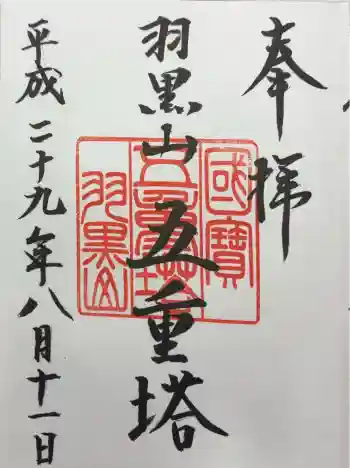 奉拝
羽黒山五重塔
平成二十九年八月十一日
國寶
五重塔
羽黒山